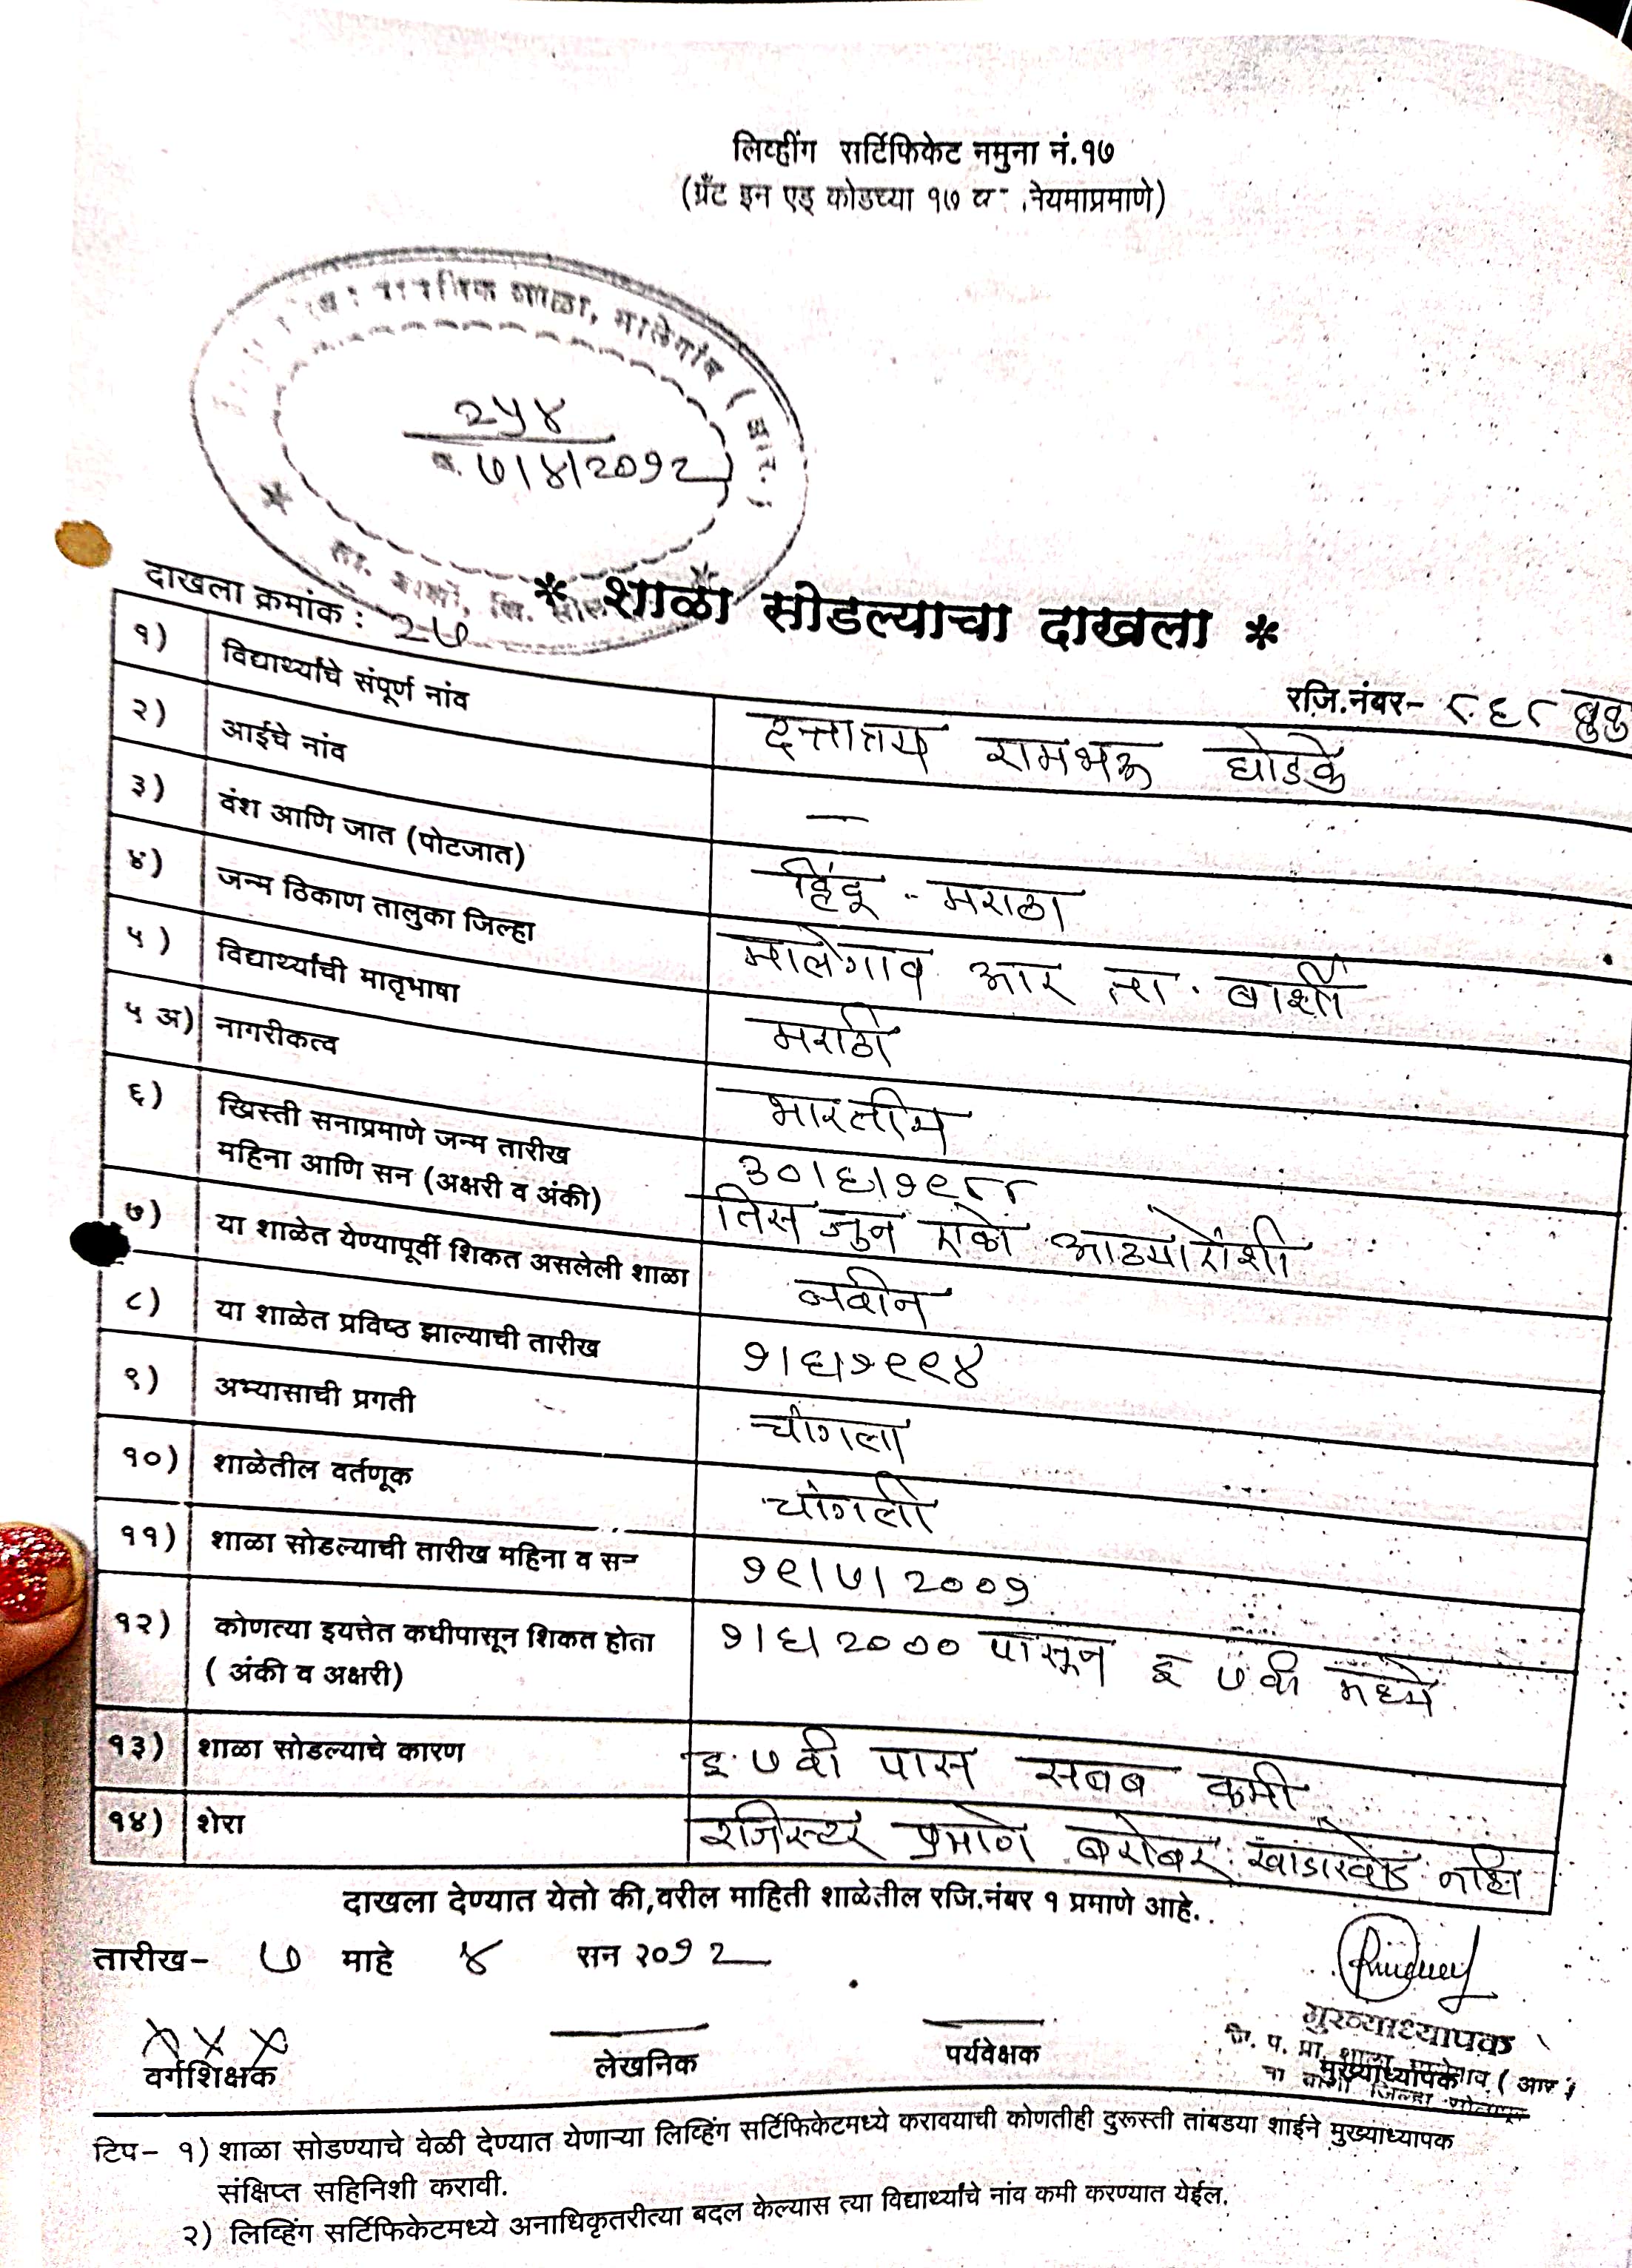 लिव्हींग सर्टिफिकेट नमुना नं.१७
(ग्रँट इन एड् कोडच्या १७ व नियमाप्रमाणे)
शाळा, मालेगांव (आर.)
२५४
७/४/२०१२
* शाळा सोडल्याचा दाखला *
दाखला क्रमांक : २७
रजि.नंबर- ८६८ बुक
१) विद्यार्थ्यांचे संपूर्ण नांव दत्तात्रय रामभाऊ घोडके
२) आईचे नांव —
३) वंश आणि जात (पोटजात) हिंदू - मराठा
४) जन्म ठिकाण तालुका जिल्हा मालेगाव आर ता. बार्शी
५) विद्यार्थ्यांची मातृभाषा मराठी
५ अ) नागरीकत्व भारतीय
६) ख्रिस्ती सनाप्रमाणे जन्म तारीख ३०/६/१९८८
महिना आणि सन (अक्षरी व अंकी) तिस जुन एको आठ्यांशी
७) या शाळेत येण्यापूर्वी शिकत असलेली शाळा नवीन
८) या शाळेत प्रविष्ठ झाल्याची तारीख १/६/१९९४
९) अभ्यासाची प्रगती चांगला
१०) शाळेतील वर्तणूक चांगली
११) शाळा सोडल्याची तारीख महिना व सन १९/७/२००१
१२) कोणत्या इयत्तेत कधीपासून शिकत होता १/६/२००० पासून इ ७ वी मध्ये
( अंकी व अक्षरी)
१३) शाळा सोडल्याचे कारण इ. ७ वी पास सबब कमी
१४) शेरा रजिस्टर प्रमाणे बरोबर खाडाखोड नाही
दाखला देण्यात येतो की,वरील माहिती शाळेतील रजि.नंबर १ प्रमाणे आहे..
तारीख- ७ माहे ४ सन २०१२
वर्गशिक्षक लेखनिक पर्यवेक्षक मुख्याध्यापक
मुख्याध्यापक
जि. प. प्रा. शाला मालेगाव ( आर )
ता बार्शी जिल्हा सोलापूर
टिप- १) शाळा सोडण्याचे वेळी देण्यात येणाऱ्या लिव्हिंग सर्टिफिकेटमध्ये करावयाची कोणतीही दुरूस्ती तांबडया शाईने मुख्याध्यापक
संक्षिप्त सहिनिशी करावी.
२) लिव्हिंग सर्टिफिकेटमध्ये अनाधिकृतरीत्या बदल केल्यास त्या विद्यार्थ्यांचे नांव कमी करण्यात येईल.